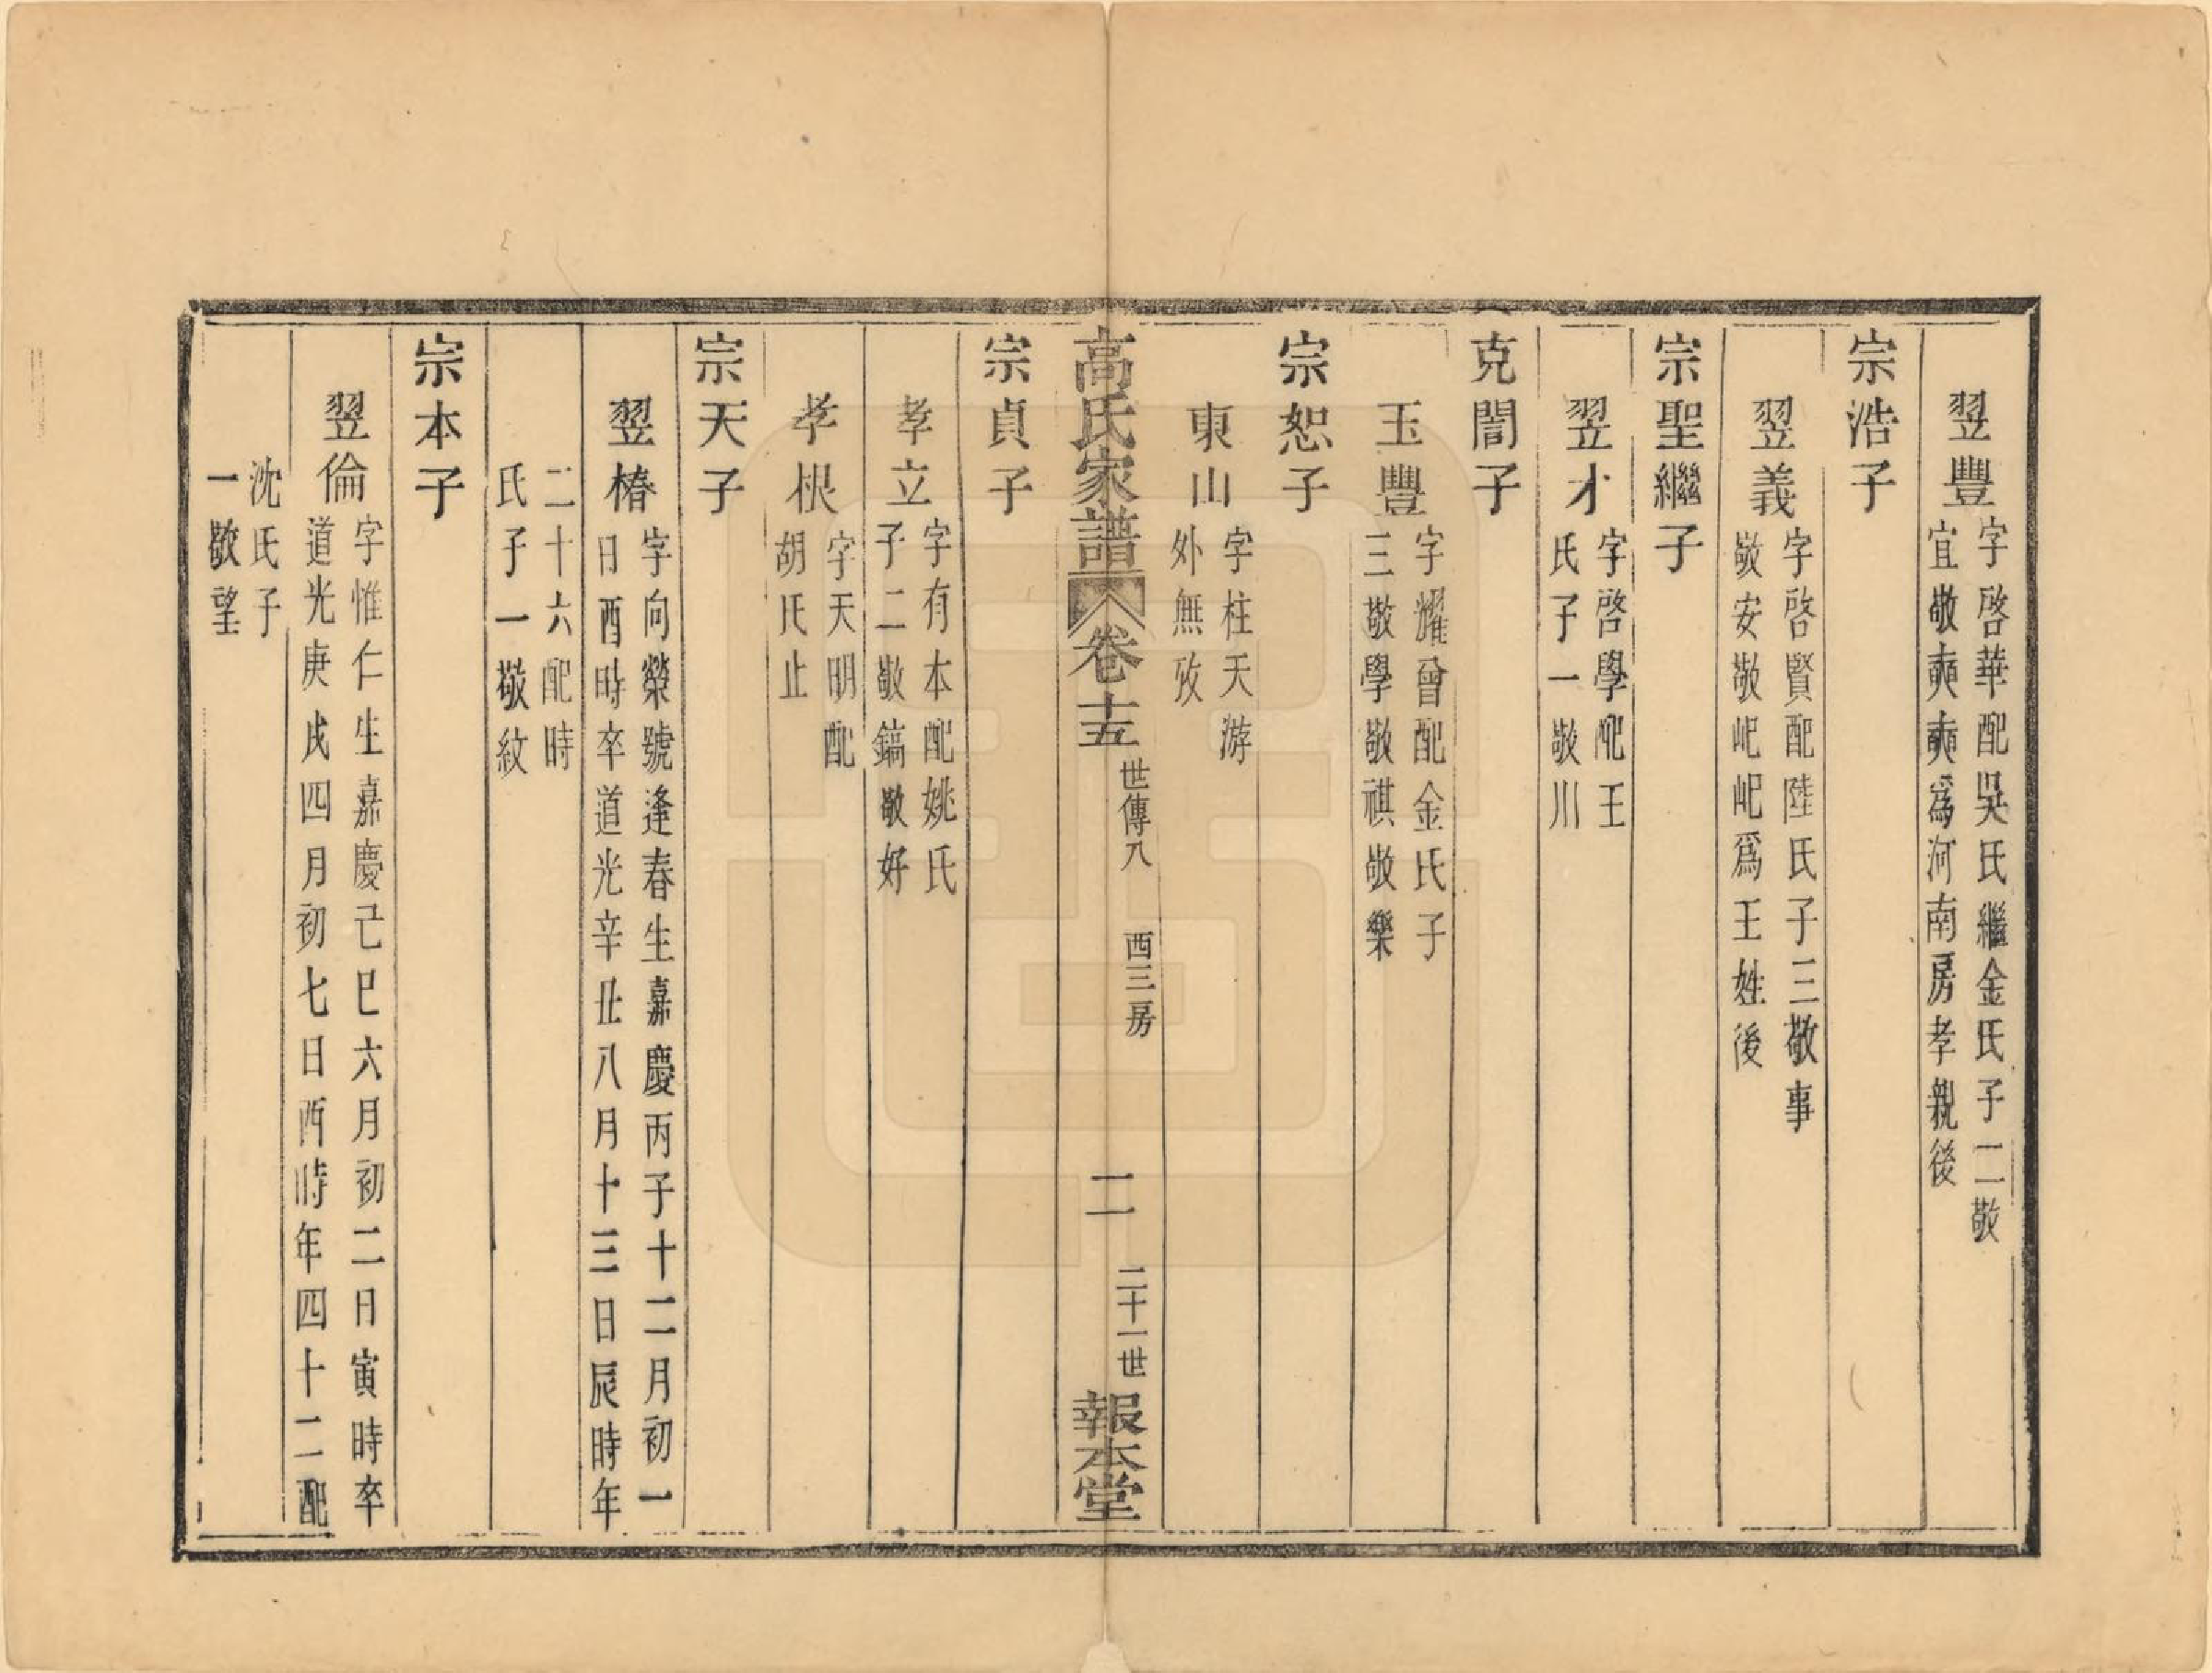 翌豐
字啓華配吳氏繼金氏子二敬
宜敬奭奭爲河南房孝親後
宗浩子
翌義
字啓賢配陸氏子三敬事
敬安敬岐岐爲王姓後
宗聖繼子
翌才
字啓學配王
氏子一敬川
克誾子
玉豐
字耀曾配金氏子
三敬學敬祺敬樂
宗恕子
東山
字柱天游
外無攷
高氏家譜
卷十五
世傳八
西三房
二
二十一世
報本堂
宗貞子
孝立
字有本配姚氏
子二敬鎬敬好
孝根
字天明配
胡氏止
宗天子
翌椿
字向榮號逢春生嘉慶丙子十二月初一
日酉時卒道光辛丑八月十三日辰時年
二十六配時
氏子一敬紋
宗本子
翌倫
字惟仁生嘉慶己巳六月初二日寅時卒
道光庚戌四月初七日酉時年四十二配
沈氏子
一敬望